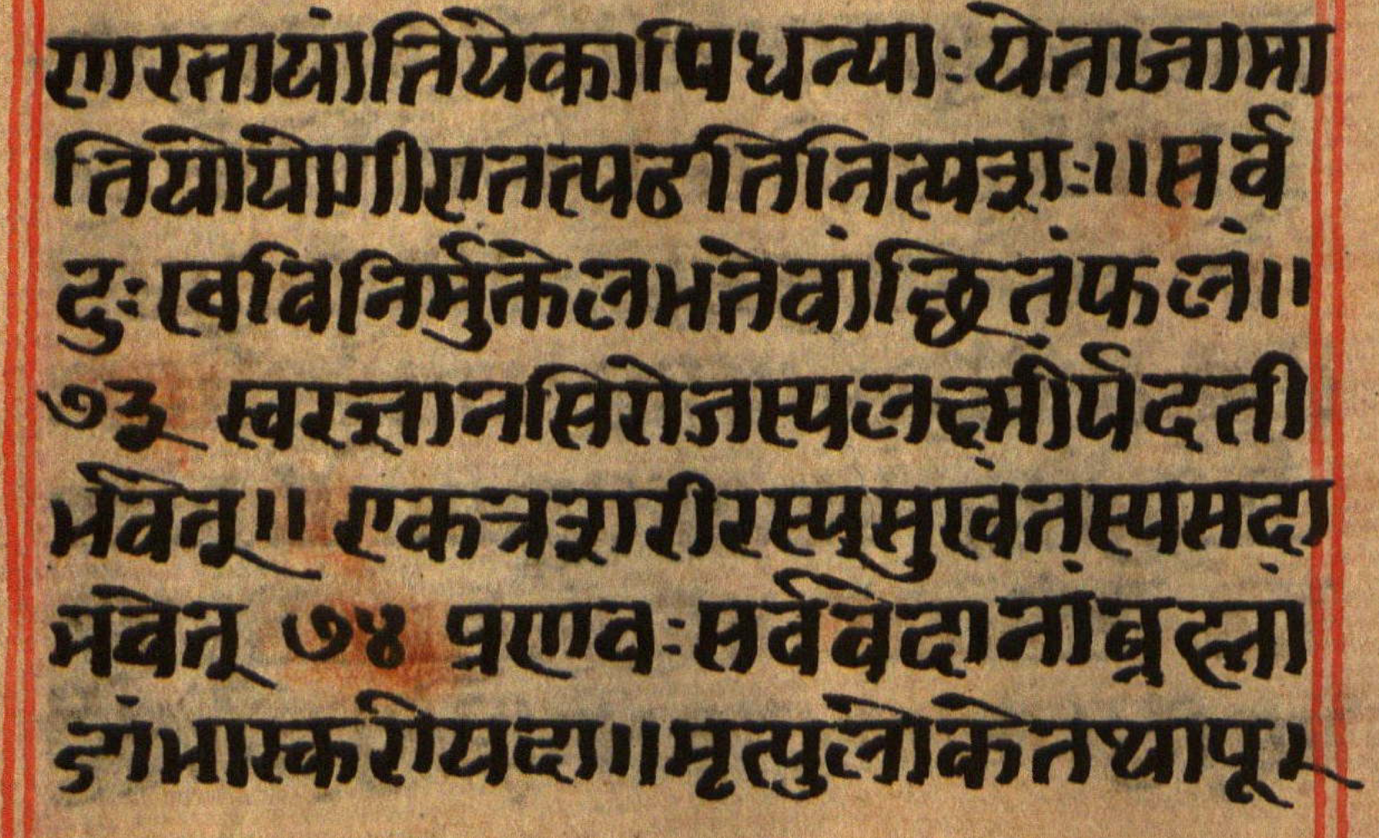 रणरतायांतियेकापिधन्याःयेताजामा
तियोयेणीएतत्पठतिनित्यशः॥सर्व
दुःखविनिर्मुक्तेलभतेवांछितंफलं॥
७३ स्वरज्ञानसिरोजस्यलक्ष्मीर्पदती
र्भवेत्॥ एकत्रशरीरस्यमुखंतस्यसदा
भवेत् ७४ प्रणवःसर्ववेदानांब्रह्मा
डांभास्करोयदा॥मृत्युलोकेतथापू